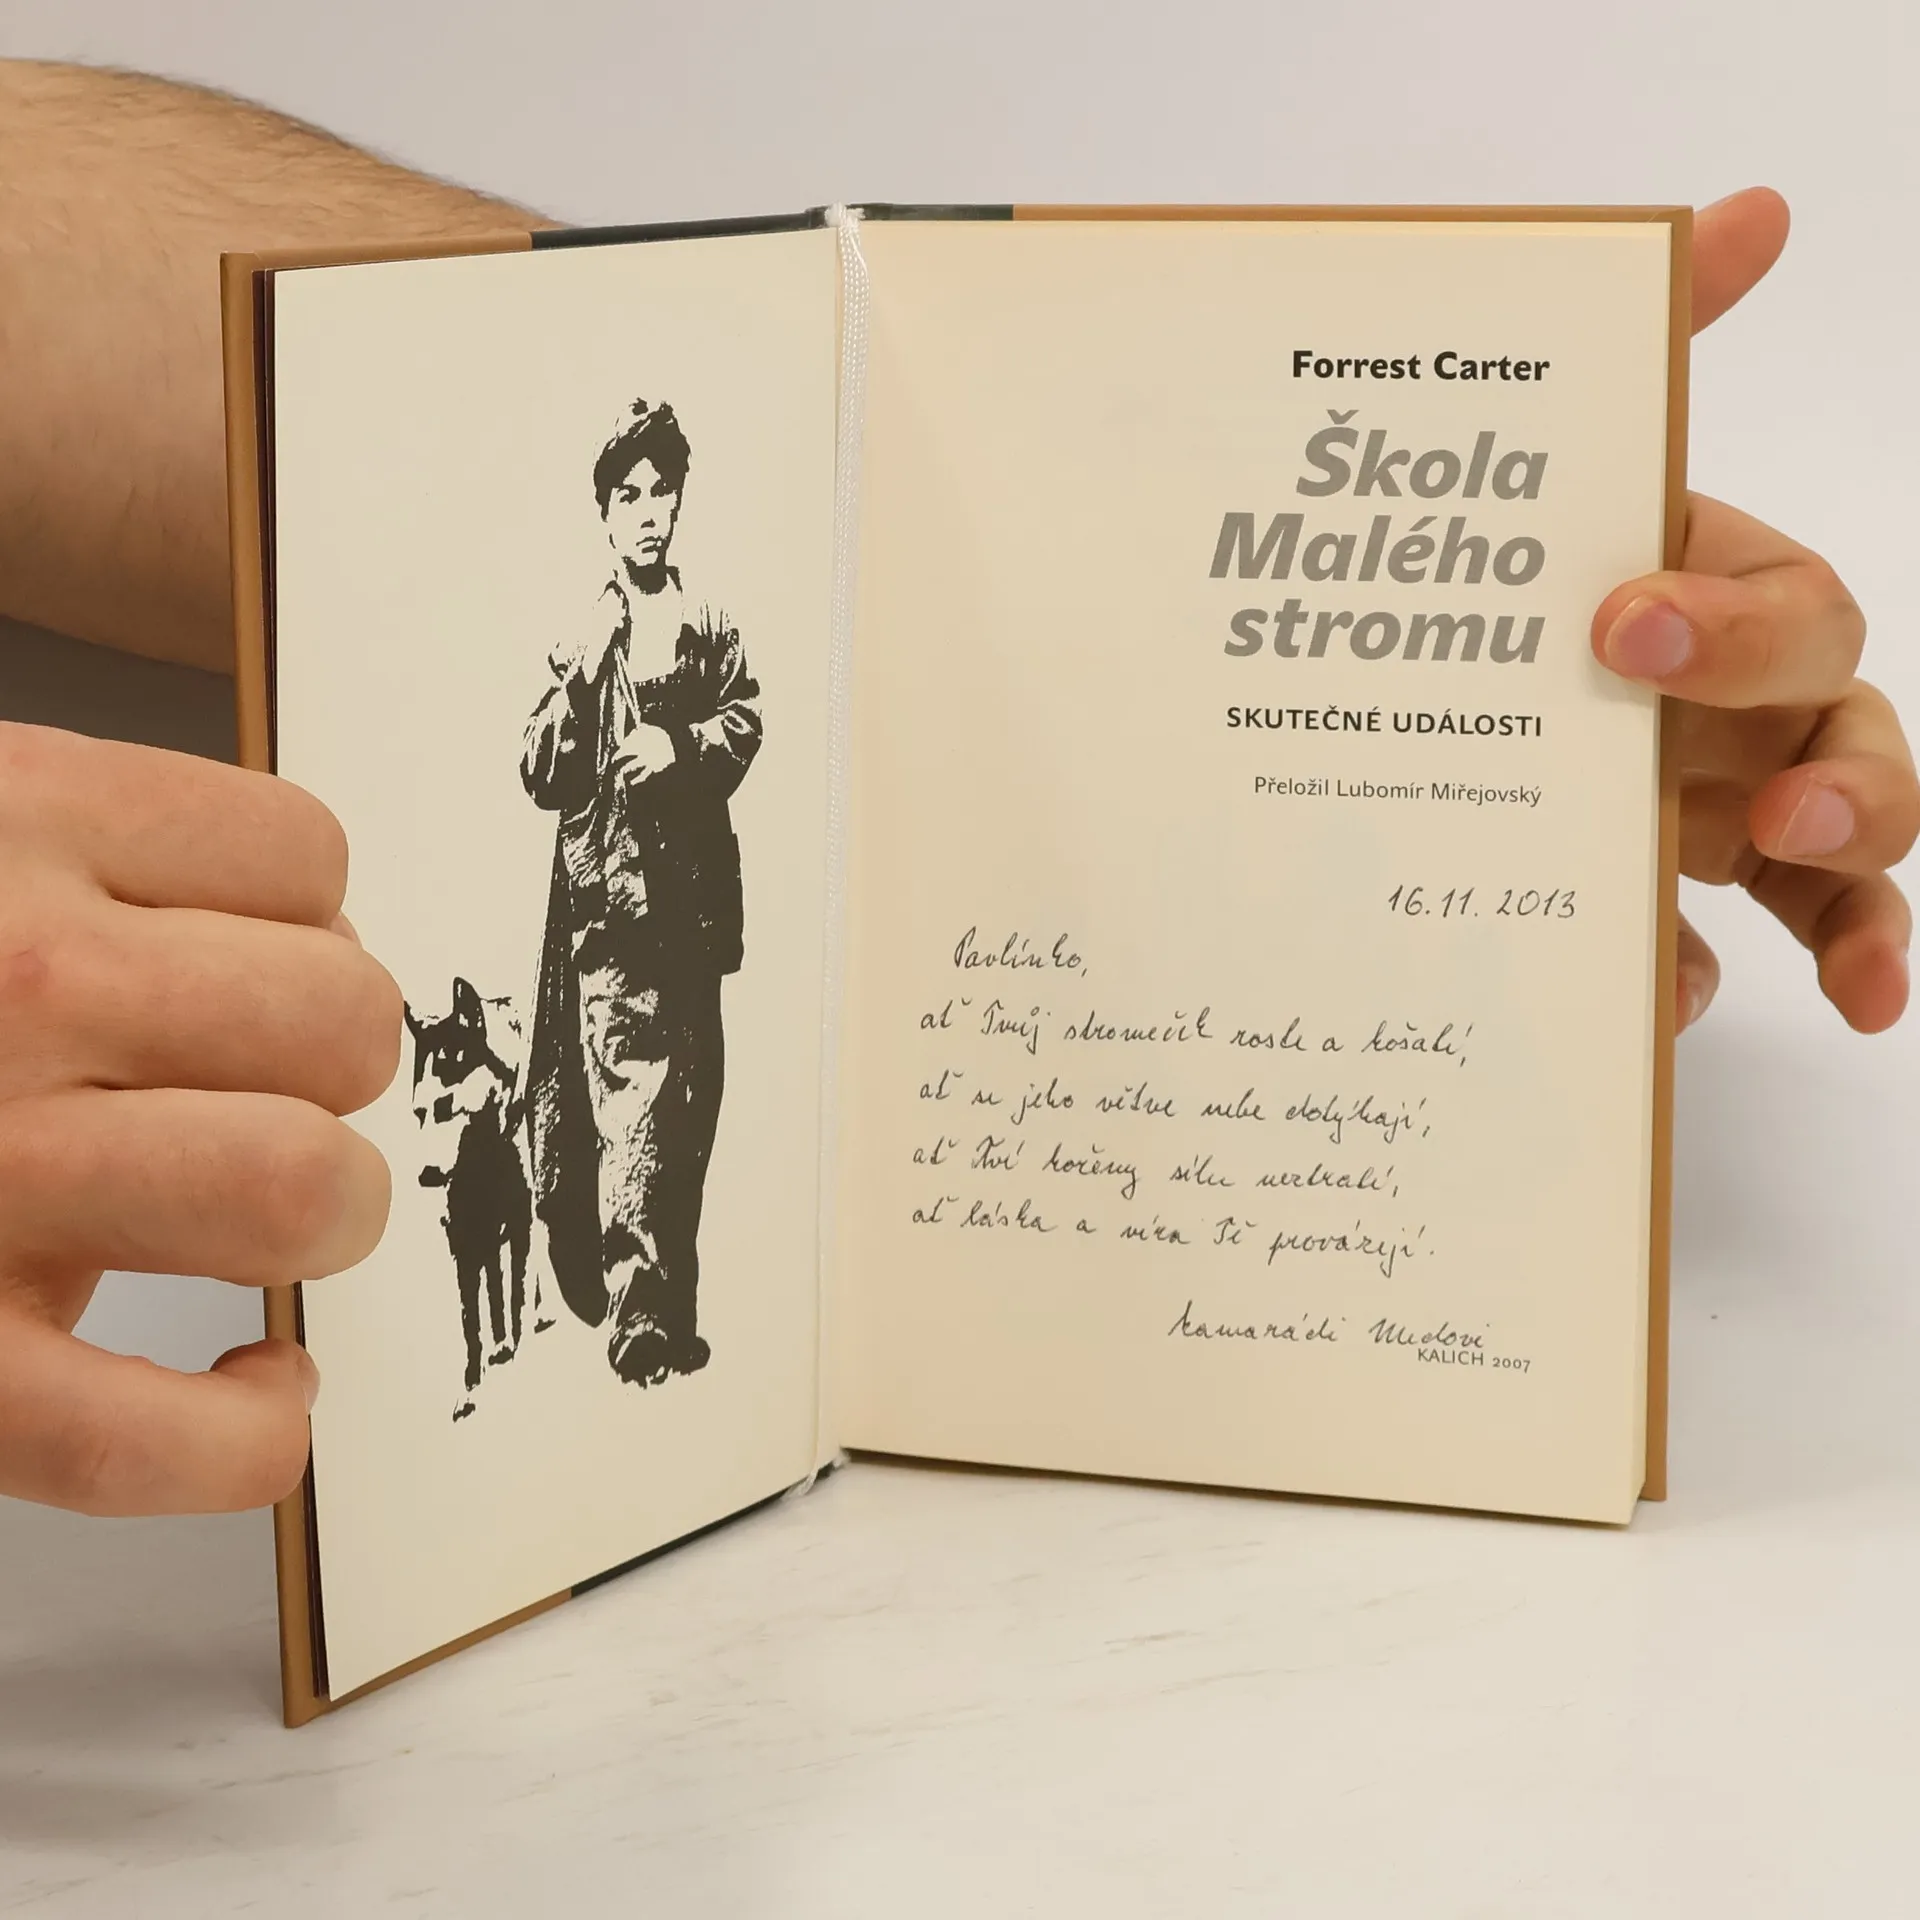 Forrest Carter
Škola
Malého
stromu
SKUTEČNÉ UDÁLOSTI
Přeložil Lubomír Miřejovský
16.11. 2013
Pavlínko,
ať Tvůj stromeček roste a košatí,
ať se jeho větve nebe dotýkají,
ať Tvé kořeny sílu neztratí,
ať láska a víra Tě provázejí.
kamarádi Medovi
KALICH 2007